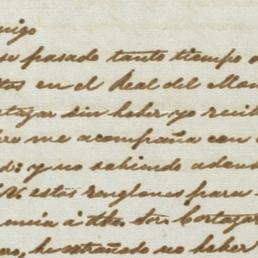 migo
se pasado tanto tiempo
tas en el Real del Mon
tazar sin haber yo recib
ro me acompaña con
d: y no sabiendo adon
V. estos renglones para
mia á Dn. Cortazar
no haber